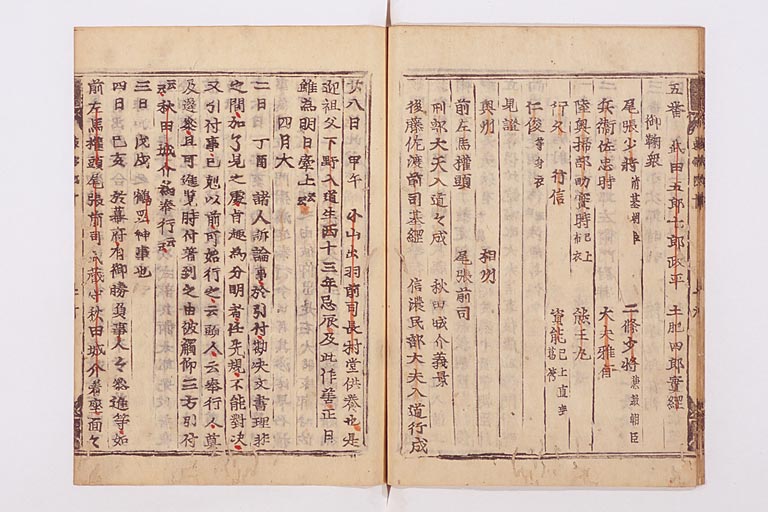 五番 武田五郎七郎政平 土肥四郎實綱
御鞠衆
尾張少將 清基朝臣 二條少將 兼教朝臣
兵衛佐忠時 大夫雅有
陸奥掃部助實時 已上布衣 熊王丸
行久 行信 實能 已上直垂葛袴
仁俊 等身衣
見證
奥州 相州
前左馬權頭 尾張前司
刑部大夫入道々成 秋田城介義景
後藤佐渡前司基綱 信濃民部大夫入道行成
廿八日 甲午 小山出羽前司長村堂供養也是
迎祖父下野入道生西十三年忌辰及此作善正日
雖為明日臺上云云
四月大
二日 丁酉 諸人訴論事於引付勘决文書理非
之間加了見之處旨趣為分明者任先規不能對决
又引付事已剋以前可始行之云頭人云奉行人莫
及遅參且可進覧時付着到之由被觸仰三方引付
云云秋田城介為奉行云云
三日 戊戌 鶴岡神事也
四日 己亥 於幕府有御勝負事人々參進等如
前左馬權頭尾張前司武蔵守秋田城介着座面々